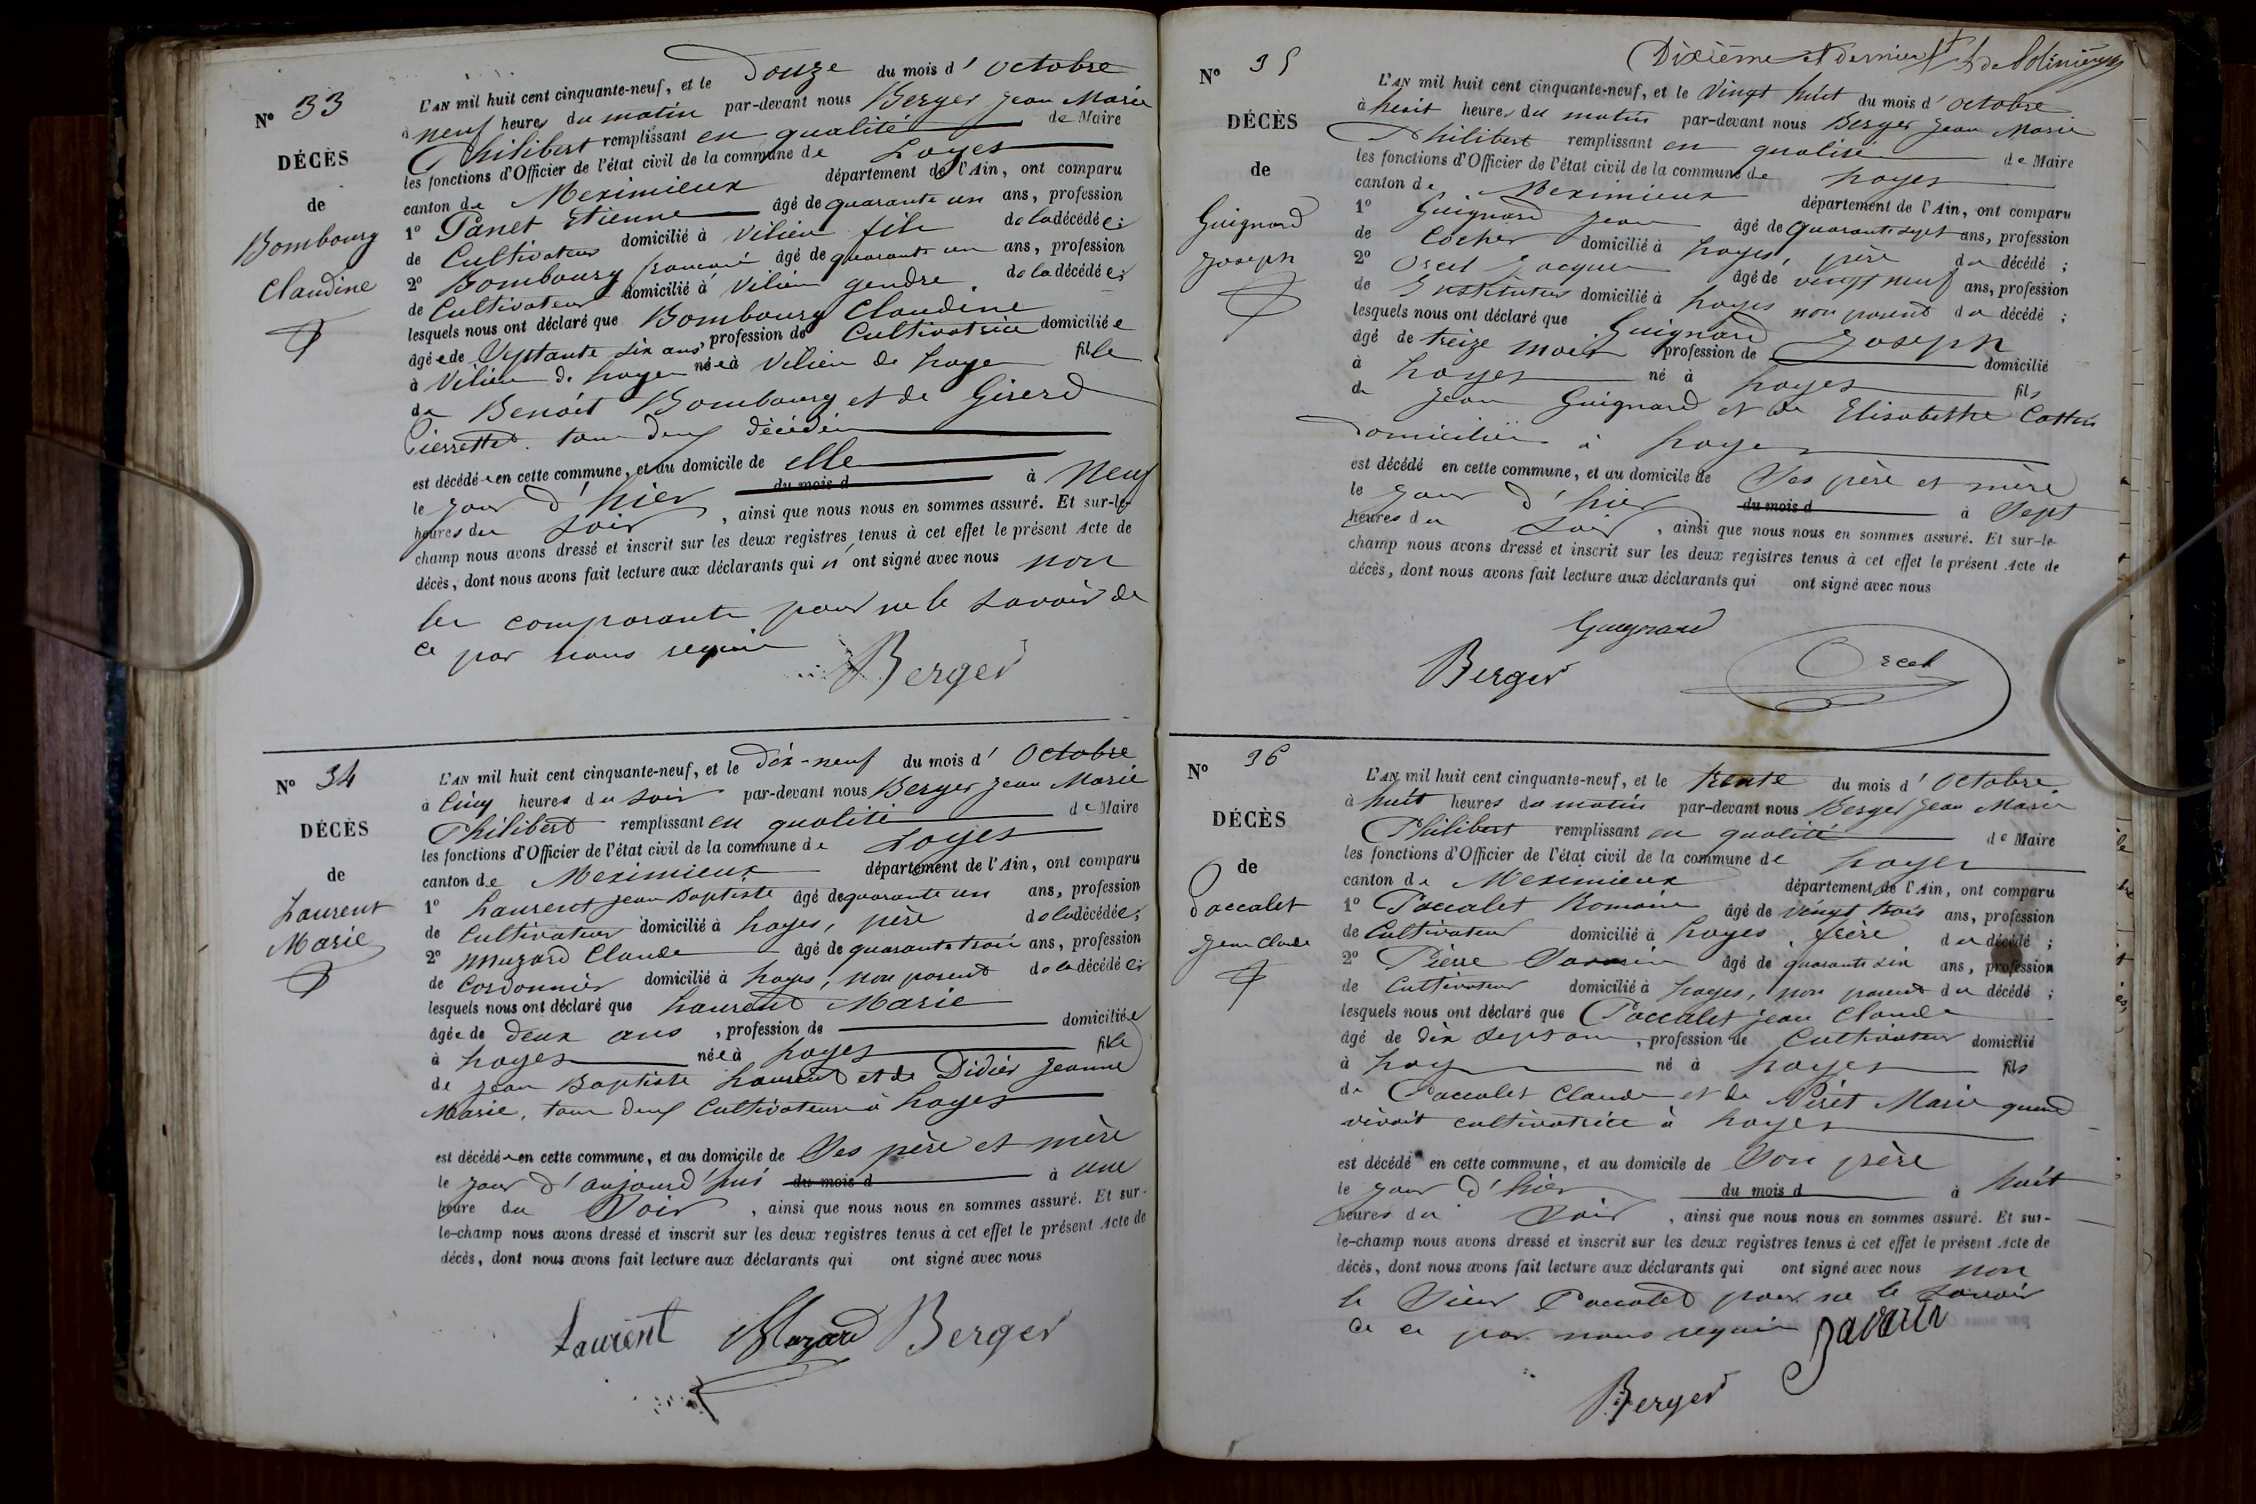 N° 33
DÉCÈS
de
Bombourg
Claudine
L'AN mil huit cent cinquante-neuf, et le Douze du mois d'Octobre
à neuf heures du matin par-devant nous Berger Jean Marie
Philibert remplissant en qualité de Maire
les fonctions d'Officier de l'état civil de la commune de Loyes
canton de Meximieux département de l'Ain, ont comparu
1° Panet Etienne âgé de quarante un ans, profession
de Cultivateur domicilié à Vilieu fils de la décédée ;
2° Bombourg âgé de quarante un ans, profession
de Cultivateur domicilié à Vilieu gendre de la décédée ;
lesquels nous ont déclaré que Bombourg Claudine
âgée de Septante six ans, profession de Cultivatrice domiciliée
à Vilieu de Loyes née à Vilieu de Loyes fille
de Benoit Bombourg et de Girerd
Pierrette tous deux décédés
est décédée en cette commune, et au domicile de elle
le jour d'hier du mois d à Neuf
heures du soir, ainsi que nous nous en sommes assuré. Et sur-le-
champ nous avons dressé et inscrit sur les deux registres tenus à cet effet le présent Acte de
décès, dont nous avons fait lecture aux déclarants qui n'ont signé avec nous non
les comparants pour ne le savoir de
ce par nous requis
Berger
N° 34
DÉCÈS
de
Laurent
Marie
L'AN mil huit cent cinquante-neuf, et le dix-neuf du mois d'Octobre
à cinq heures du soir par-devant nous Berger Jean Marie
Philibert remplissant en qualité de Maire
les fonctions d'Officier de l'état civil de la commune de Loyes
canton de Meximieux département de l'Ain, ont comparu
1° Laurent Jean Baptiste âgé de quarante un ans, profession
de Cultivateur domicilié à Loyes, père de la décédée ;
2° Muzard Claude âgé de quarante trois ans, profession
de Cordonnier domicilié à Loyes, non parent de la décédée ;
lesquels nous ont déclaré que Laurent Marie
âgée de deux ans, profession de domiciliée
à Loyes née à Loyes fille
de Jean Baptiste Laurent et de Didier Jeanne
Marie, tous deux Cultivateurs à Loyes
est décédée en cette commune, et au domicile de Ses père et mère
le jour d'aujourd'hui du mois d à une
heure du Soir, ainsi que nous nous en sommes assuré. Et sur-
le-champ nous avons dressé et inscrit sur les deux registres tenus à cet effet le présent Acte de
décès, dont nous avons fait lecture aux déclarants qui ont signé avec nous
Laurent Muzard Berger
Dixième et dernier
N° 35
DÉCÈS
de
Guignard
Joseph
L'AN mil huit cent cinquante-neuf, et le Vingt huit du mois d'octobre
à heuit heures du matin par-devant nous Berger Jean Marie
Philibert remplissant en qualité de Maire
les fonctions d'Officier de l'état civil de la commune de Loyes
canton de Meximieux département de l'Ain, ont comparu
1° Guignard Jean âgé de quarante sept ans, profession
de Cocher domicilié à Loyes, père du décédé ;
2° Orcel Jacques âgé de vingt neuf ans, profession
de Instituteur domicilié à Loyes non parent du décédé ;
lesquels nous ont déclaré que Guignard Joseph
âgé de treize mois profession de domicilié
à Loyes né à Loyes fils
de Jean Guignard et de Elisabethe Cottin
domiciliés à Loyes
est décédé en cette commune, et au domicile de Ses père et mère
le jour d'hier du mois d à Sept
heures du Soir, ainsi que nous nous en sommes assuré. Et sur-le-
champ nous avons dressé et inscrit sur les deux registres tenus à cet effet le présent Acte de
décès, dont nous avons fait lecture aux déclarants qui ont signé avec nous
Guignard
Berger Orcel
N° 36
DÉCÈS
de
Paccalet
Jean Claude
L'AN mil huit cent cinquante-neuf, et le trente du mois d'Octobre
à huit heures du matin par-devant nous Berger Jean Marie
Philibert remplissant en qualité de Maire
les fonctions d'Officier de l'état civil de la commune de Loyes
canton de Meximieux département de l'Ain, ont comparu
1° Paccalet Romain âgé de vingt trois ans, profession
de Cultivateur domicilié à Loyes, frère du décédé ;
2° Pierre Savarin âgé de quarante six ans, profession
de Cultivateur domicilié à Loyes, non parent du décédé ;
lesquels nous ont déclaré que Paccalet Jean Claude
âgé de dix sept ans, profession de Cultivateur domicilié
à Loyes né à Loyes fils
de Paccalet Claude et de Néret Marie quand
vivait cultivatrice à Loyes
est décédé en cette commune, et au domicile de Son père
le jour d'hier du mois d à huit
heures du Soir, ainsi que nous nous en sommes assuré. Et sur-
le-champ nous avons dressé et inscrit sur les deux registres tenus à cet effet le présent Acte de
décès, dont nous avons fait lecture aux déclarants qui ont signé avec nous non
le Sieur Paccalet pour ne le savoir
de ce par nous requis Savarin
Berger